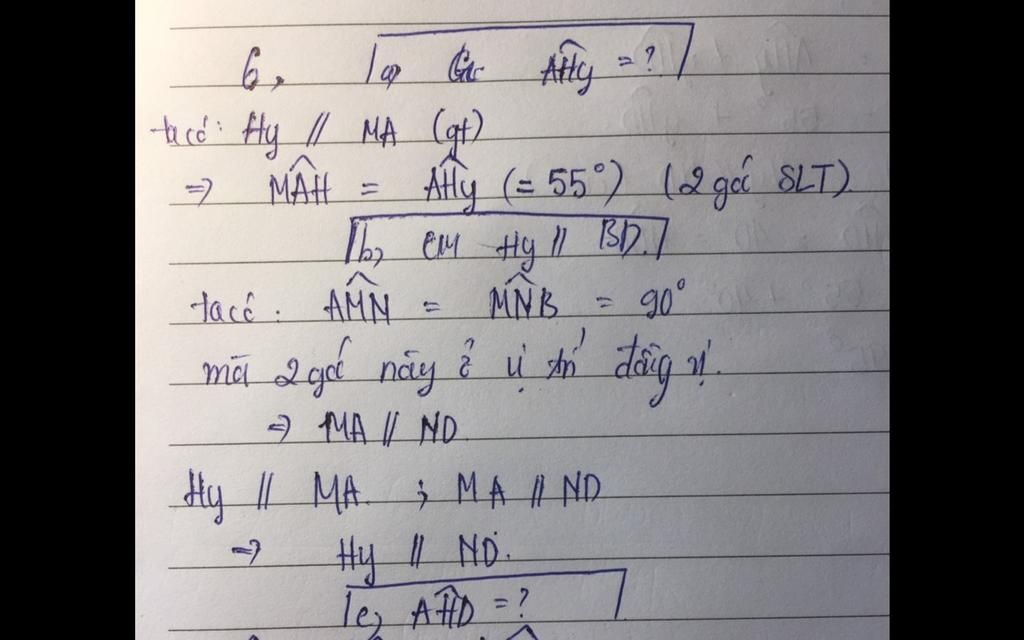 6, a, Góc AĤy = ?
ta có: Hy // MA (gt)
=> MÂH = AĤy (= 55°) (2 góc SLT)
b, CM Hy // BD.
ta có: AM̂N = MN̂B = 90°
mà 2 góc này ở vị trí đồng vị.
=> MA // ND
Hy // MA ; MA // ND
=> Hy // ND.
c, AĤD = ?